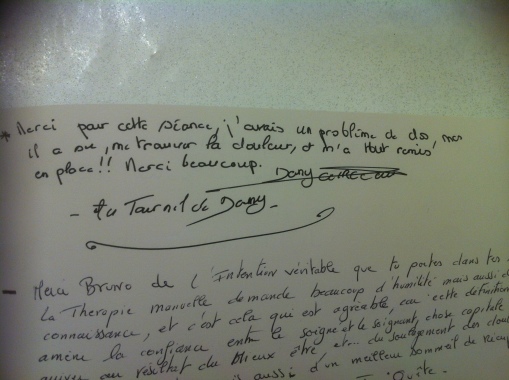 * Merci pour cette séance, j'avais un problème de dos, mais
il a su, me trouver la douleur, et m'a tout remis
en place!! Merci beaucoup.
Dany
- Au Tournil de Dany -
- Merci Bruno de l'Intention véritable que tu portes dans tes
La Thérapie manuelle demande beaucoup d'humilité mais aussi d
connaissance, et c'est cela qui est agréable car cette définition
amène la confiance entre le soigné et le soignant, chose capitale
au résultat du Mieux être et... du soulagement des doul
aussi d'un meilleur sommeil de récup
Quête.